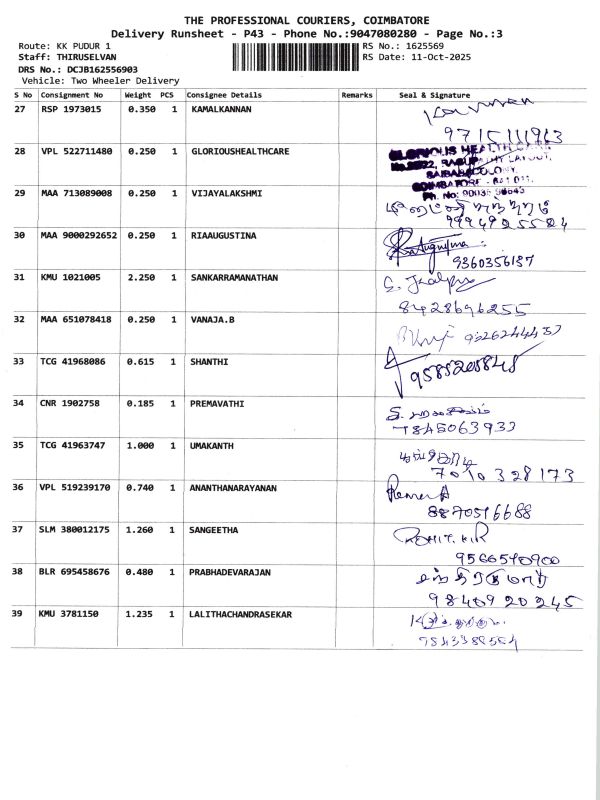 THE PROFESSIONAL COURIERS, COIMBATORE
Delivery Runsheet - P43 - Phone No.:9047080280 - Page No.:3
Route: KK PUDUR 1 RS No.: 1625569
Staff: THIRUSELVAN RS Date: 11-Oct-2025
DRS No.: DCJB162556903
Vehicle: Two Wheeler Delivery
S No Consignment No Weight PCS Consignee Details Remarks Seal & Signature
27 RSP 1973015 0.350 1 KAMALKANNAN
9715111963
28 VPL 522711480 0.250 1 GLORIOUSHEALTHCARE GLORIOUS HEALTH CARE
SAIBABA COLONY,
COIMBATORE
29 MAA 713089008 0.250 1 VIJAYALAKSHMI
9994925584
30 MAA 9000292652 0.250 1 RIAAUGUSTINA
9360356137
31 KMU 1021005 2.250 1 SANKARRAMANATHAN
8428696255
32 MAA 651078418 0.250 1 VANAJA.B
33 TCG 41968086 0.615 1 SHANTHI
9585205848
34 CNR 1902758 0.185 1 PREMAVATHI
7845063933
35 TCG 41963747 1.000 1 UMAKANTH
7010328173
36 VPL 519239170 0.740 1 ANANTHANARAYANAN
8870516688
37 SLM 380012175 1.260 1 SANGEETHA ROHIT. K.R
9566540900
38 BLR 695458676 0.480 1 PRABHADEVARAJAN
9840920245
39 KMU 3781150 1.235 1 LALITHACHANDRASEKAR